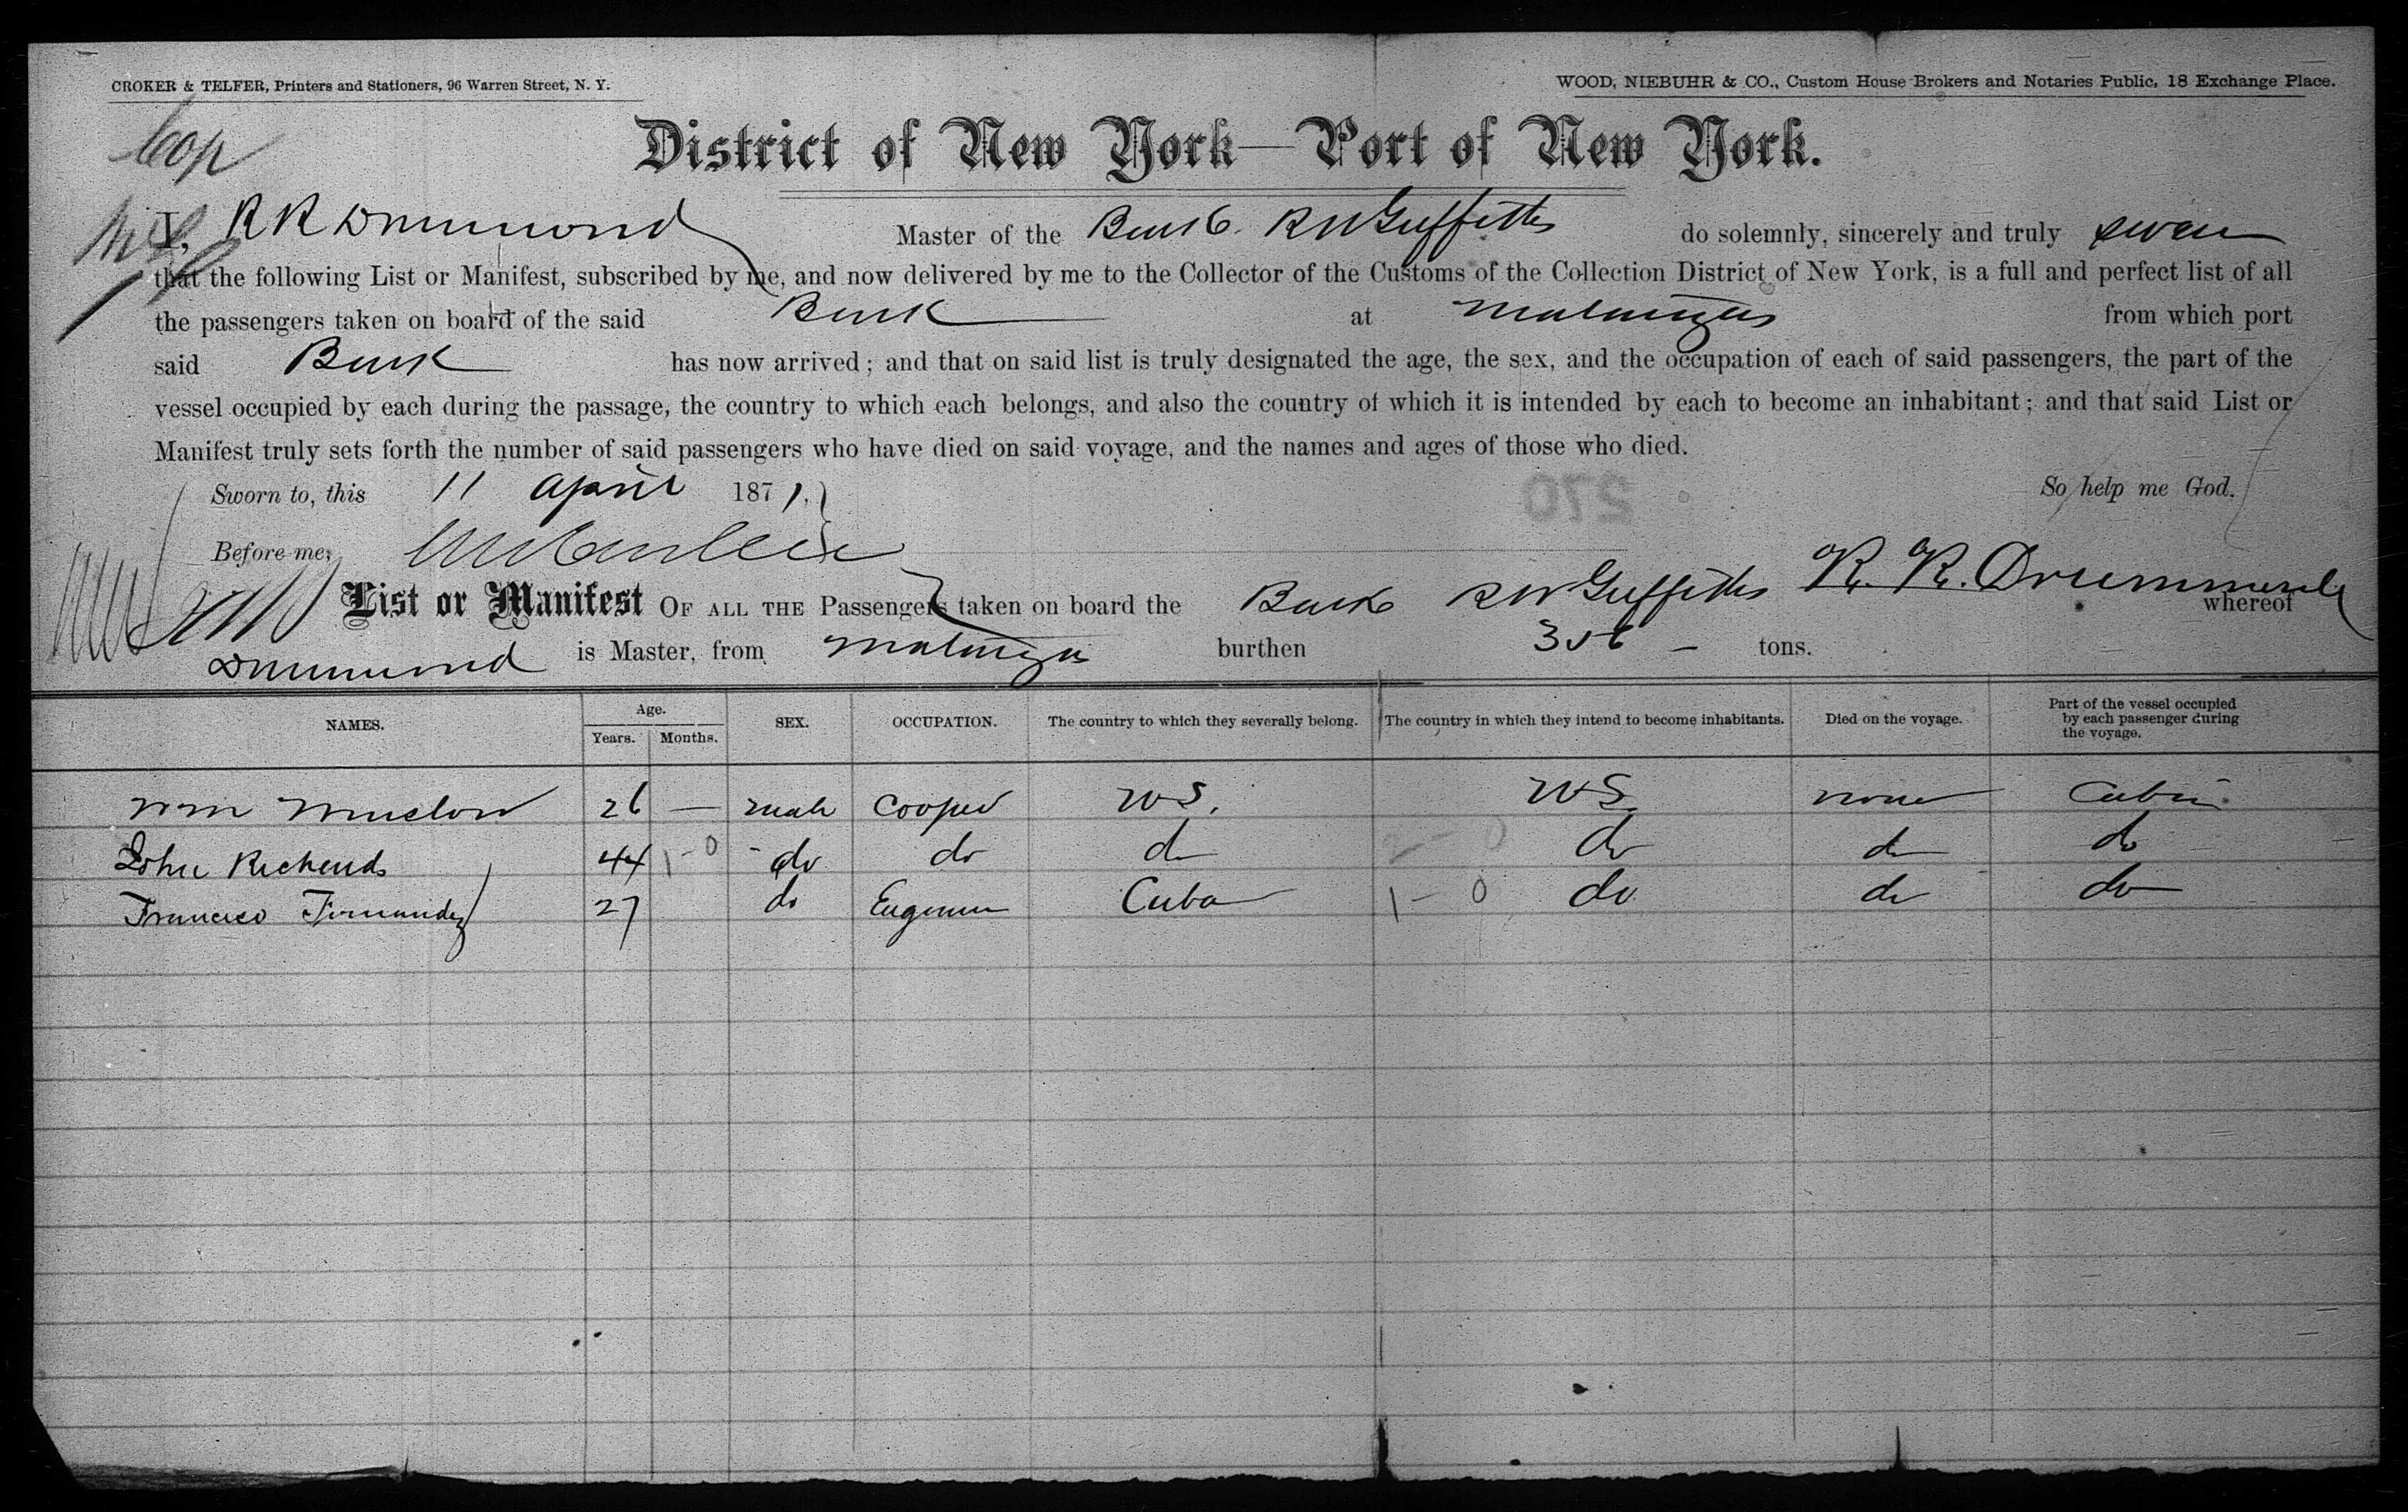 CROKER & TELFER, Printers and Stationers, 96 Warren Street, N. Y.
WOOD, NIEBUHR & CO., Custom House Brokers and Notaries Public, 18 Exchange Place.
District of New York—Port of New York.
I, R R Drummond Master of the Bark R W Griffiths do solemnly, sincerely and truly swear
that the following List or Manifest, subscribed by me, and now delivered by me to the Collector of the Customs of the Collection District of New York, is a full and perfect list of all
the passengers taken on board of the said Bark at Matanzas from which port
said Bark has now arrived; and that on said list is truly designated the age, the sex, and the occupation of each of said passengers, the part of the
vessel occupied by each during the passage, the country to which each belongs, and also the country of which it is intended by each to become an inhabitant; and that said List or
Manifest truly sets forth the number of said passengers who have died on said voyage, and the names and ages of those who died.
Sworn to, this 11 April 1871. So help me God.
270
Before me,
R. R. Drummond
List or Manifest OF ALL THE Passengers taken on board the Bark R W Griffiths whereof
Drummond is Master, from Matanzas burthen tons.
NAMES. Age. Years. Months. SEX. OCCUPATION. The country to which they severally belong. The country in which they intend to become inhabitants. Died on the voyage. Part of the vessel occupied by each passenger during the voyage.
Wm Winslow 26 — male Cooper US. US. none Cabin
John Richards 44 1-0 do do do 2-0 do do do
Francisco Fernandez 27 do Engineer Cuba 1-0 do do do